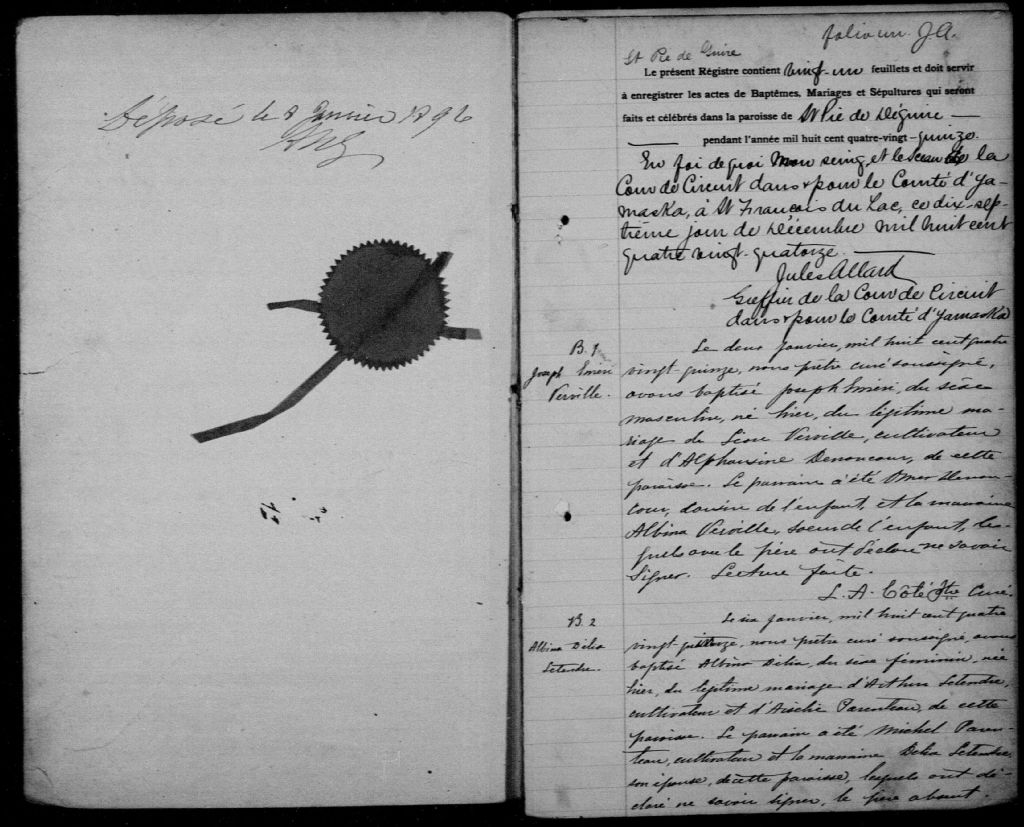 Déposé le 8 Janvier 1896
folio un. J.A.
St Pie de Guire
Le présent Régistre contient vingt-un feuillets et doit servir
à enregistrer les actes de Baptêmes, Mariages et Sépultures qui seront
faits et célébrés dans la paroisse de St Pie de Déguire
pendant l'année mil huit cent quatre-vingt-quinze.
En foi de quoi Mon seing, et le sceau de la
Cour de Circuit dans & pour le Comté d'Ya-
maska, à St François du Lac, ce dix-sep-
tième jour de Décembre mil huit cent
quatre vingt-quatorze.
Jules Allard
Greffier de la Cour de Circuit
dans & pour le Comté d'Yamaska
B. 1
Joseph Eméri
Verville.
Le deux janvier, mil huit cent quatre
vingt-quinze, nous prêtre curé soussigné,
avons baptisé Joseph Eméri, du sexe
masculin, né hier, du légitime ma-
riage de Léon Verville, cultivateur
et d'Alphonsine Denoncour, de cette
paroisse. Le parrain a été Omer Denon-
cour, cousin de l'enfant, et la marraine
Albina Verville, soeur de l'enfant, les-
quels avec le père ont déclaré ne savoir
signer. Lecture faite.
L. A. Côté Ptre Curé.
B. 2
Albina Délia
Letendre.
Le six janvier, mil huit cent quatre
vingt-quinze, nous prêtre curé soussigné, avons
baptisé Albina Délia, du sexe féminin, née
hier, du légitime mariage d'Arthur Letendre,
cultivateur et d'Parenteau, de cette
paroisse. Le parrain a été Michel Paren-
teau, cultivateur et la marraine Délia Letendre
son épouse, de cette paroisse, lesquels ont dé-
claré ne savoir signer, le père absent.